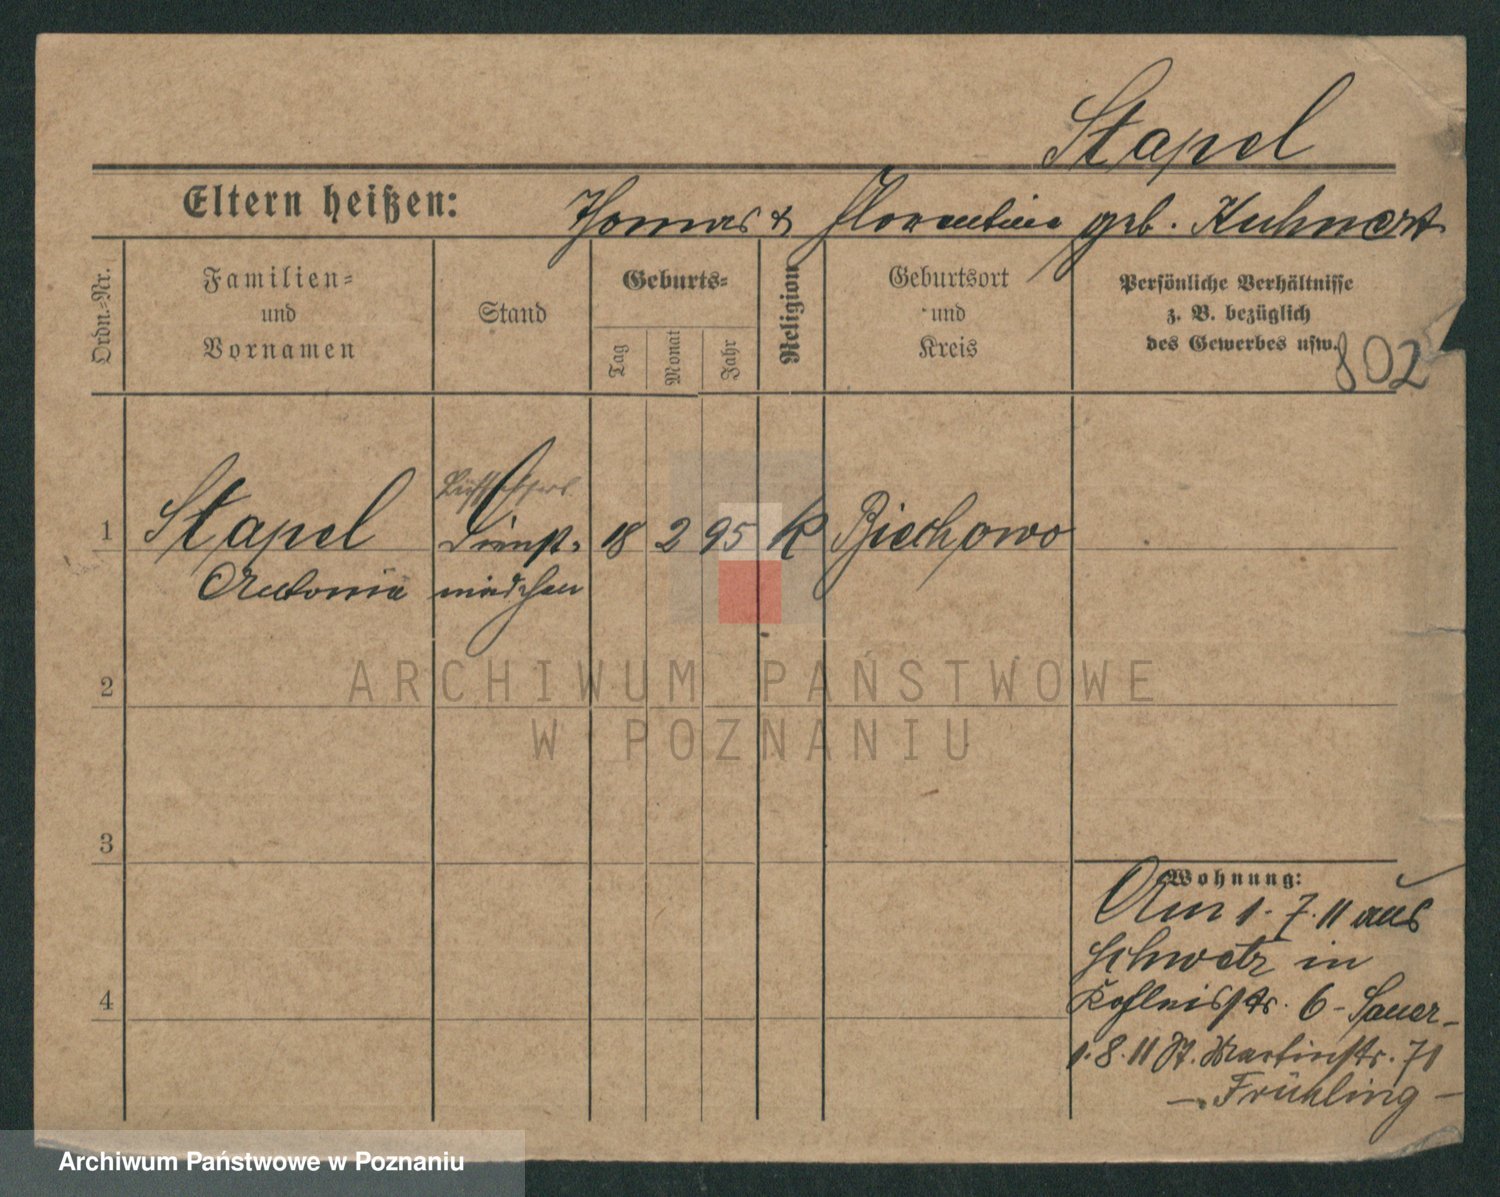 Stapel
Eltern heißen: Thomas & Florentine geb. Kuhnert
Ordn.-Nr.
Familien-
und
Vornamen
Stand
Geburts-
Tag
Monat
Jahr
Religion
Geburtsort
und
Kreis
Persönliche Verhältnisse
z. B. bezüglich
des Gewerbes usw.
802
1 Stapel Dienst- 18 2 95 K Biechowo
Antonie mädchen
2
3
4
Wohnung:
Am 1.7.11 aus
Schwetz in
Kohleisstr. 6 - Sauer -
1.8.11 St. Martinstr. 71
- Frühling -
ARCHIWUM PAŃSTWOWE
W POZNANIU
Archiwum Państwowe w Poznaniu